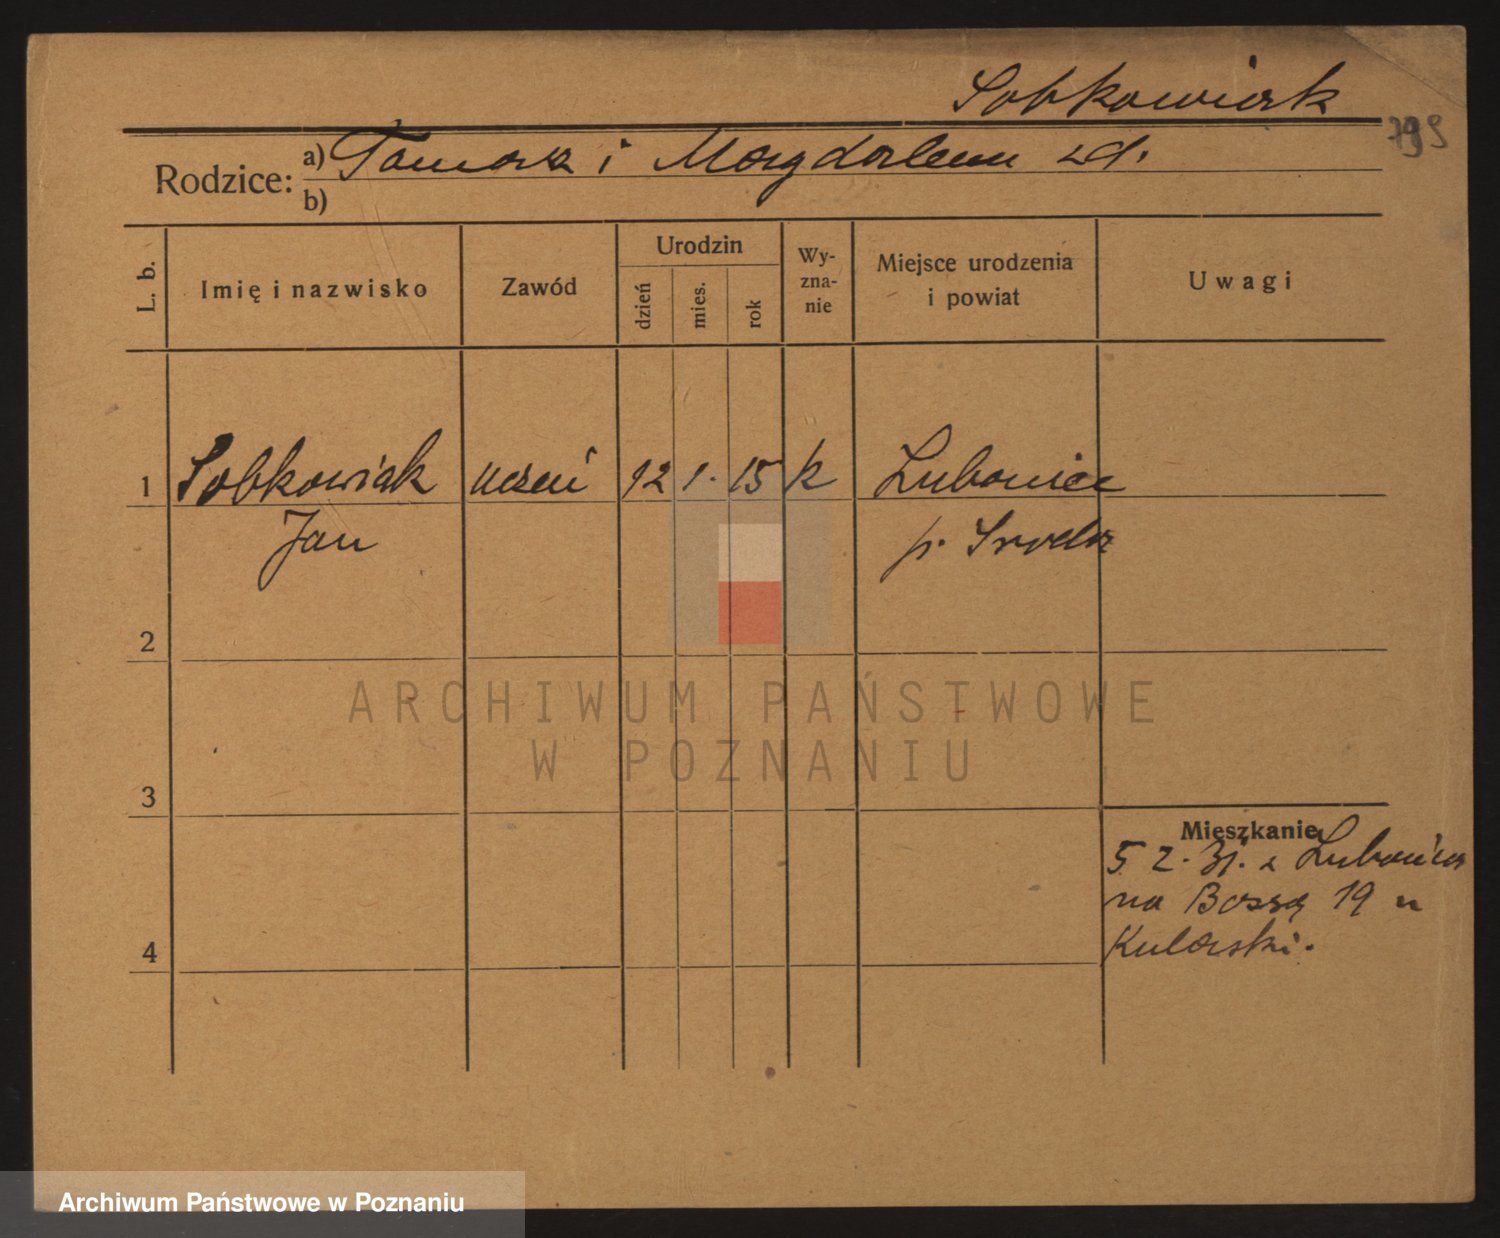 Sobkowiak
795
Rodzice: a) Tomasz i Magdalena zd.
b)
L. b.
Imię i nazwisko
Zawód
Urodzin
dzień
mies.
rok
Wy-
zna-
nie
Miejsce urodzenia
i powiat
Uwagi
1 Sobkowiak uczeń 12 1. 15 k Lubonice
Jan p. Sroda
2
3
4
Mieszkanie
5. 2. 31. z Lubonica
na Bossą 19 u
Kularski.
ARCHIWUM PAŃSTWOWE
W POZNANIU
Archiwum Państwowe w Poznaniu